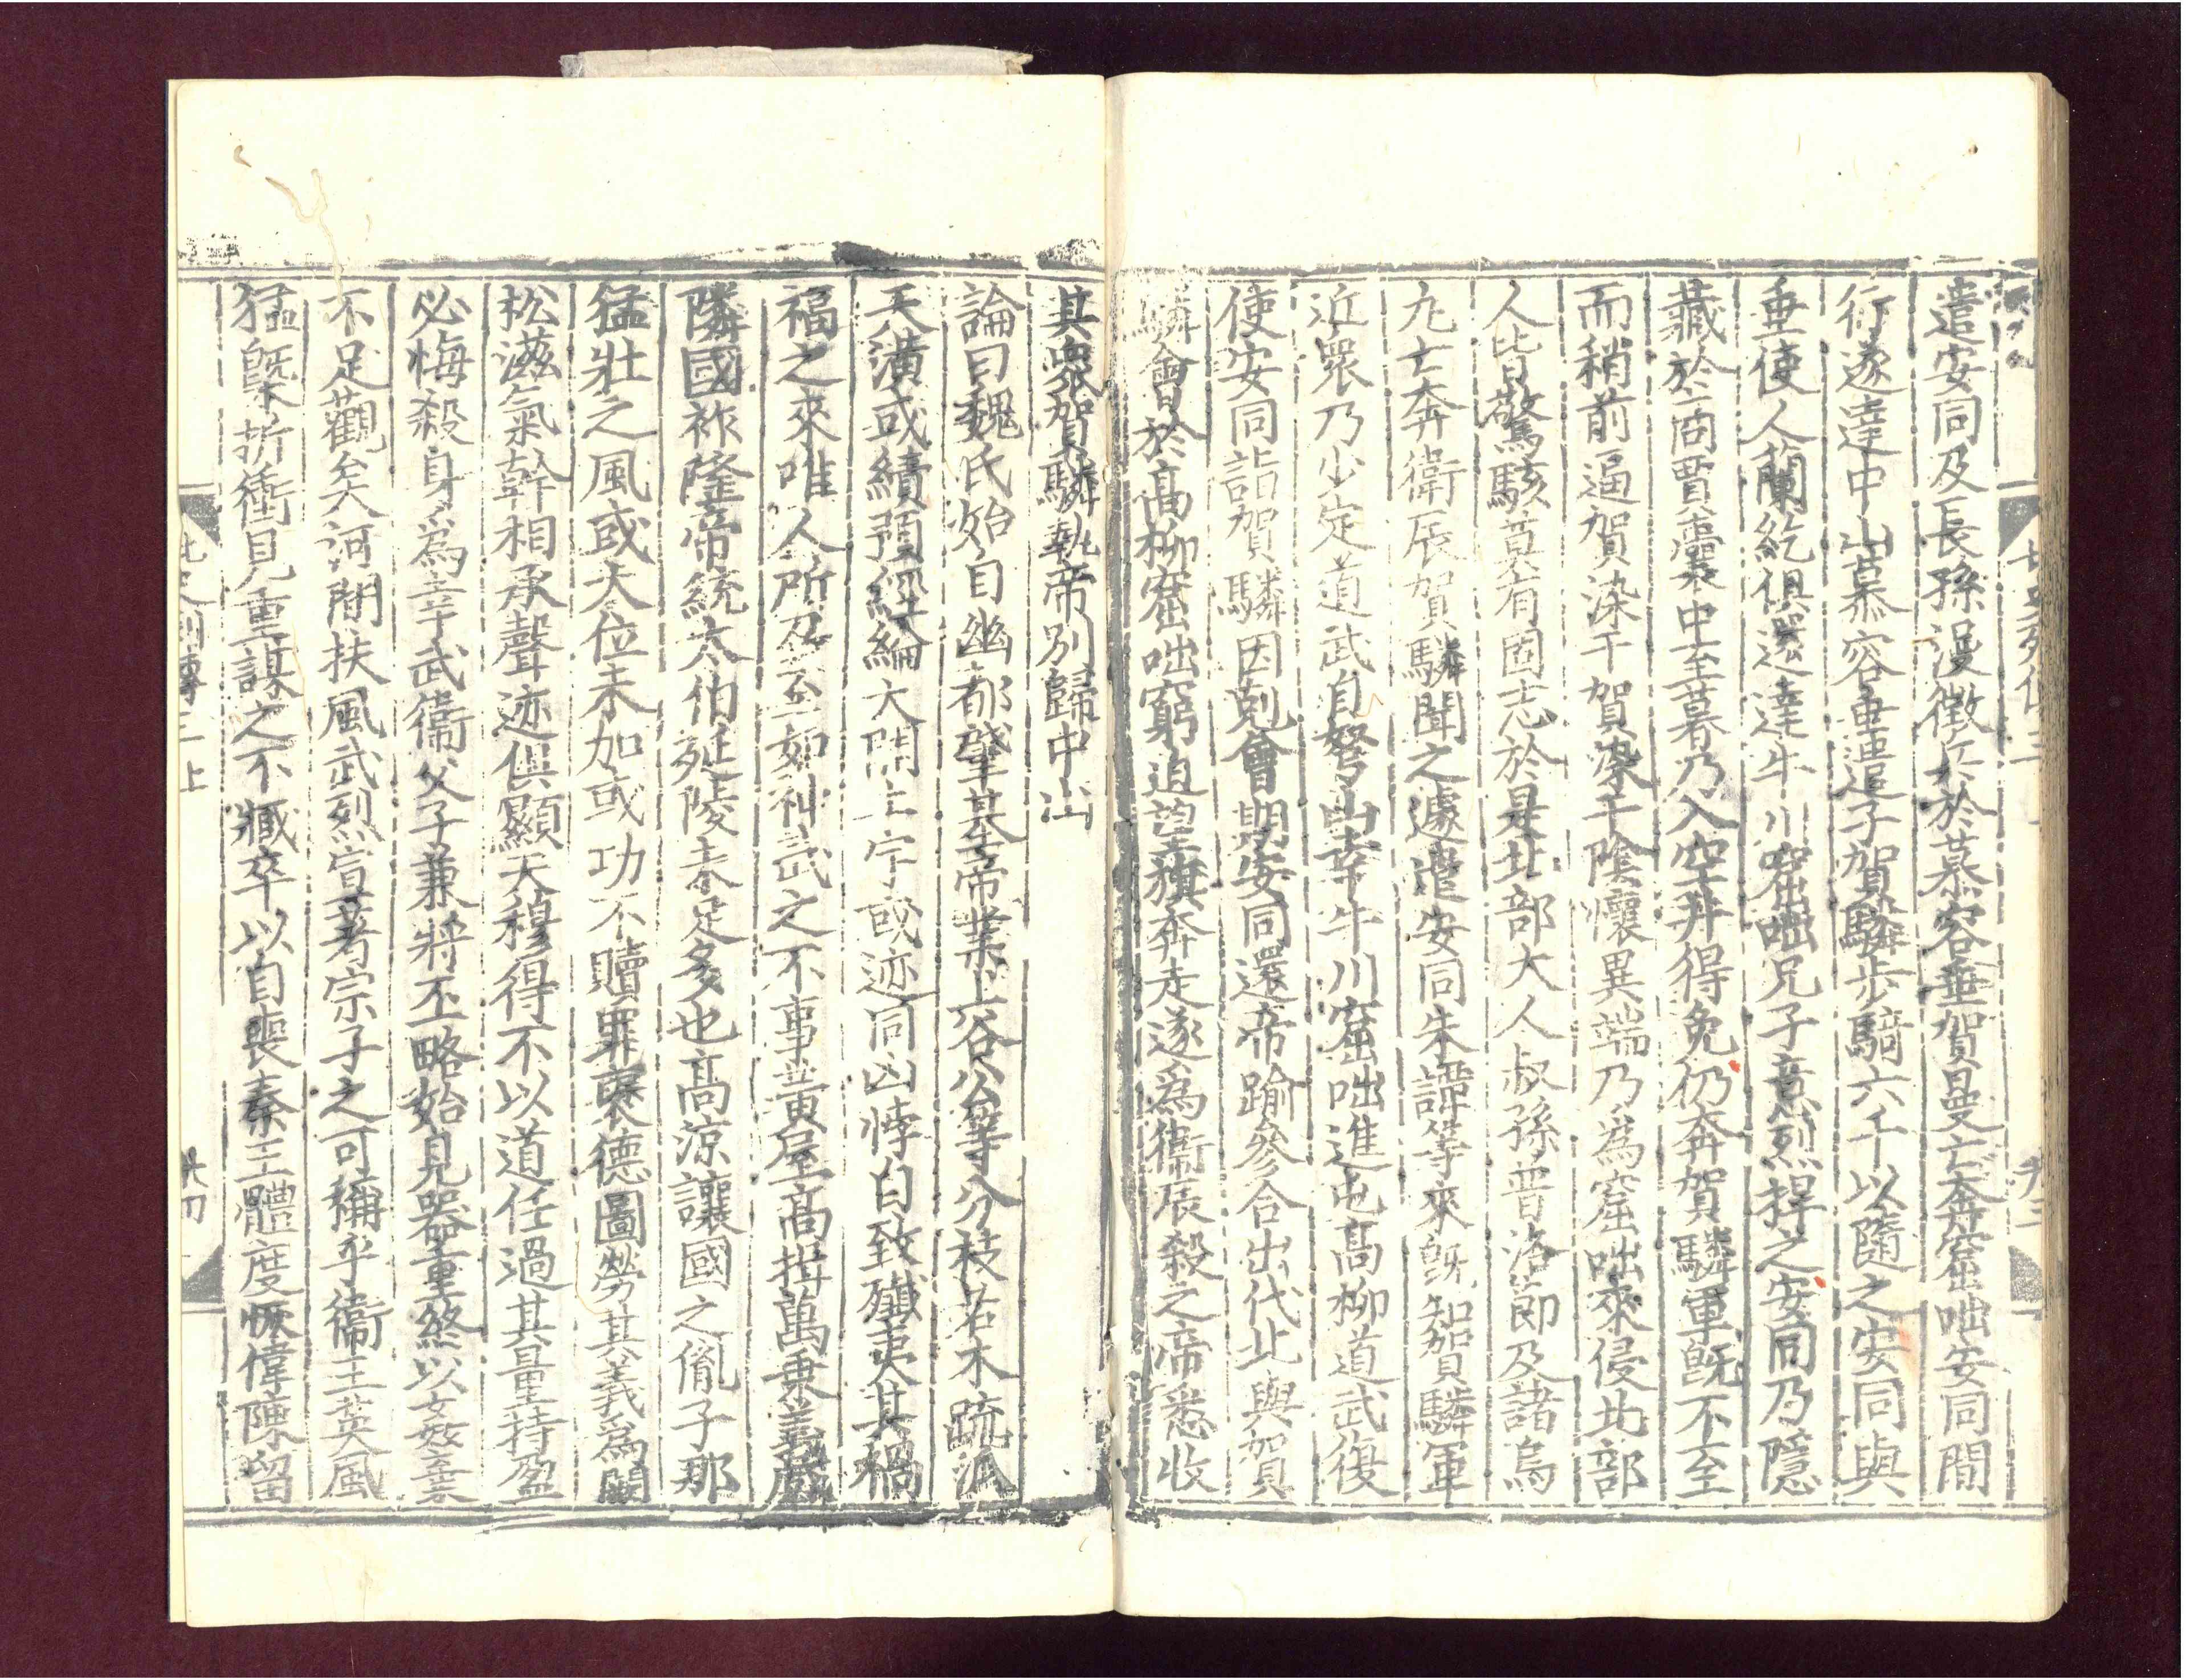 遣安同及長孫漫徵兵於慕容垂賀曼亡奔窟咄安同間
行遂達中山慕容垂遣子賀驎步騎六千以隨之安同與
垂使人蘭紇俱還達牛川窟咄兄子意烈捍之安同乃隱
藏於商賈囊中至暮乃入空井得免仍奔賀驎軍既不至
而稍前逼賀染干賀染干陰懷異端乃爲窟咄來侵北部
人皆驚駭莫有固志於是北部大人叔孫普洛節及諸烏
丸亡奔衛辰賀驎聞之遽遣安同朱譚等來既知賀驎軍
近眾乃少定道武自弩山幸牛川窟咄進屯高柳道武復
使安同詣賀驎因剋會期安同還帝踰參合出代北與賀
驎會於高柳窟咄窮迫望旗奔走遂爲衛辰殺之帝悉收
其衆賀驎執帝別歸中山
論曰魏氏始自幽都肇基帝業上谷公等分枝若木疏派
天潢或續預經綸大開土宇或迹同凶悖自致殲夷其禍
福之來唯人所召至如神武之不事黃屋高揖萬乘義感
隣國祚隆帝統太伯延陵未足多也高涼讓國之胤子那
猛壯之風或大位未加或功不贖罪襃德圖勞其義爲闕
松滋氣幹相承聲迹俱顯天穆得不以道任過其量持盈
必悔殺身爲幸武衞父子兼將丕略始見器重煞以姦棄
不足觀矣河間扶風武烈宣著宗子之可稱乎衞王英風
猛槩折衝見重謀之不臧卒以自喪秦王體度恢偉陳留
北史列傳三上